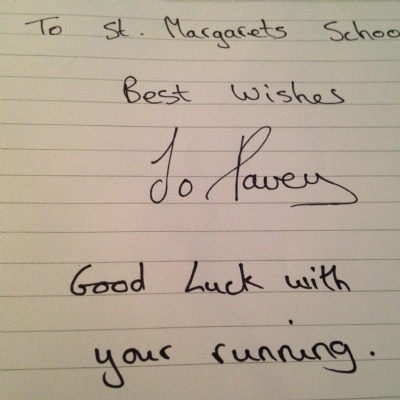 To St. Margarets Schoo
Best Wishes
Jo Pavey
Good Luck with
your running.